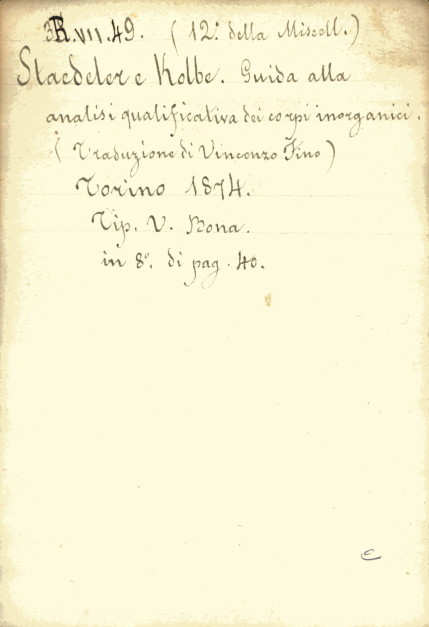 3R.VII.49. (12.° della Miscell.)
Staedeler e Kolbe. Guida alla
analisi qualificativa dei corpi inorganici.
(Traduzione di Vincenzo Fino)
Torino 1874.
Tip. V. Bona.
in 8°. di pag. 40.